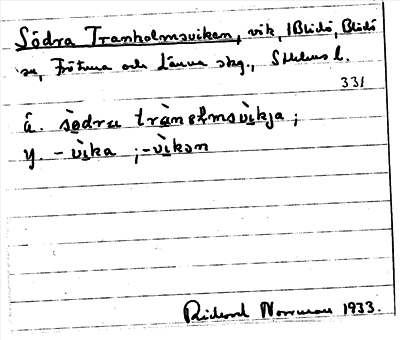 Södra Tranholmsviken, vik, i Blidö, Blidö
sn, Frötuna och Länna skg., Sthlms l.
331
å. sὸdra trànəlmsvìkja ;
y. - vìka ; -vìkən
Rickard Norrman 1933.